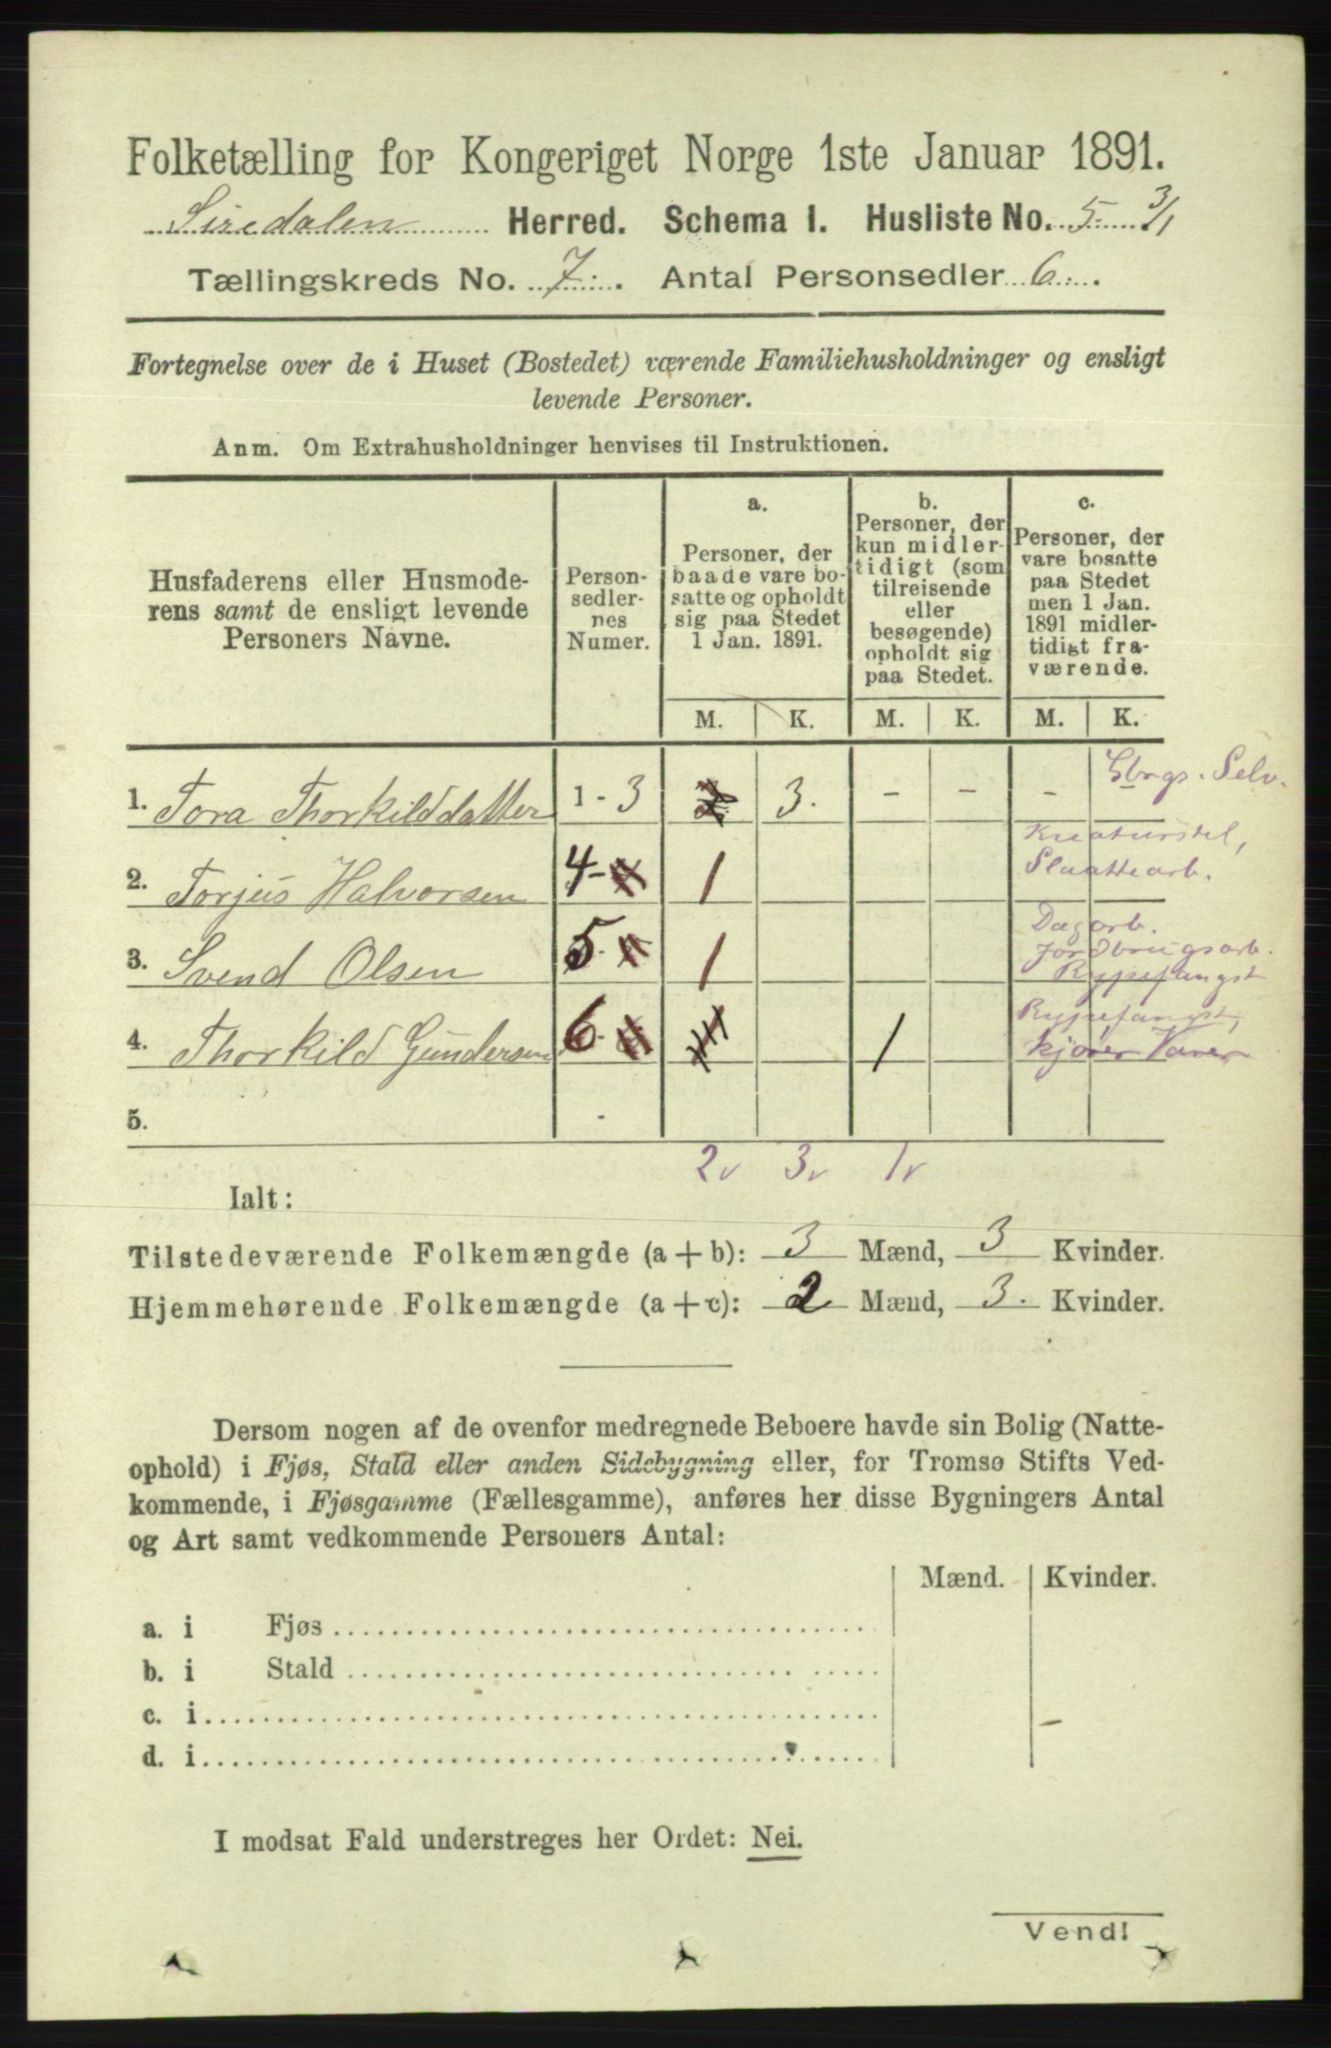 Folketælling for Kongeriget Norge 1ste Januar 1891.
Siredalen Herred. Schema I. Husliste No. 5 3/1
Tællingskreds No. 7. Antal Personsedler 6.
Fortegnelse over de i Huset (Bostedet) værende Familiehusholdninger og ensligt
levende Personer.
Anm. Om Extrahusholdninger henvises til Instruktionen.
Husfaderens eller Husmode-
rens samt de ensligt levende
Personers Navne.
Person-
sedler-
nes
Numer.
a.
Personer, der
baade vare bo-
satte og opholdt
sig paa Stedet
1 Jan. 1891.
b.
Personer, der
kun midler-
tidigt (som
tilreisende
eller
besøgende)
opholdt sig
paa Stedet.
c.
Personer, der
vare bosatte
paa Stedet
men 1 Jan.
1891 midler-
tidigt fra-
værende.
M. K. M. K. M. K.
1. Tora Thorkilddatter 1 - 3 3. - - - Gbrgs. Selv.
2. Torjus Halvorsen 4- 1 Kreaturstel,
Slaattearb.
3. Svend Olsen 5- 1 Dagarb.
Jordbrugsarb.
Rypefangst
4. Thorkild Gundersen 6- 1 Rypefangst,
kjører Varer
5. -
2v 3v 1v
Ialt:
Tilstedeværende Folkemængde (a + b): 3 Mænd, 3 Kvinder.
Hjemmehørende Folkemængde (a + c): 2 Mænd, 3. Kvinder.
Dersom nogen af de ovenfor medregnede Beboere havde sin Bolig (Natte-
ophold) i Fjøs, Stald eller anden Sidebygning eller, for Tromsø Stifts Ved-
kommende, i Fjøsgamme (Fællesgamme), anføres her disse Bygningers Antal
og Art samt vedkommende Personers Antal:
Mænd. Kvinder.
a. i Fjøs
b. i Stald
c. i -
d. i
I modsat Fald understreges her Ordet: Nei.
Vend!